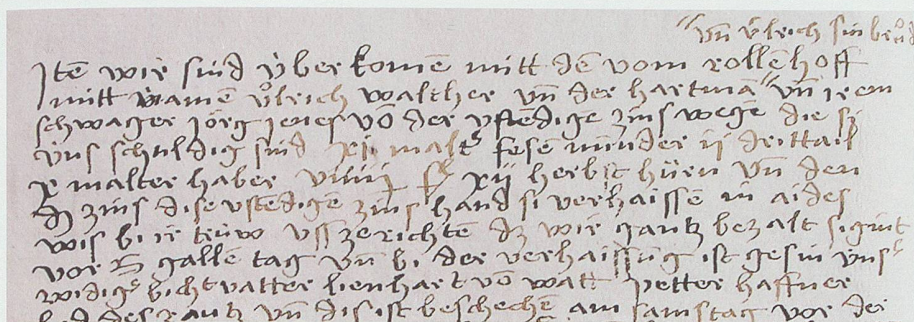 vn̄ vͦlrich sin brůd
Jtē wir sind v́ber komē mitt dē vom rollēhoff
mitt namē vͦlrich walther vn̄ der hartmā vn̄ irem
schwager jörg jenes vō der vstedige zins wegē die si
v́ns schuldig sind xij malt fesē minder ij drittail
x malter haber viiij ß xij herbst hu̇rn vn̄ den
dz zins dise vstēdigē zins hand si verhaissē in aides
wis bi ir trúw vss ze richtē dz wir gantz bezalt sigint
vor S gallē tag vn̄ bi der verhaissūg ist gesin v́ns
widig bichtvatter lienhart vō watt petter haffner
vn̄ dis ist beschechē am samstag vor der